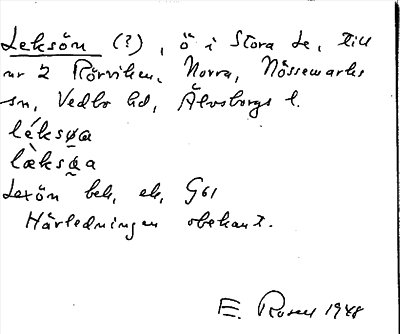 Leksön (?), ö i Stora Le, till
nr 2 Rörviken, Norra, Nössemarks
sn, Vedbo hd, Älvsborgs l.
léksøa
læ̀ksa̰a
Lexön bek, ek, G61
Härledningen obekant.
E. Rosell 1948